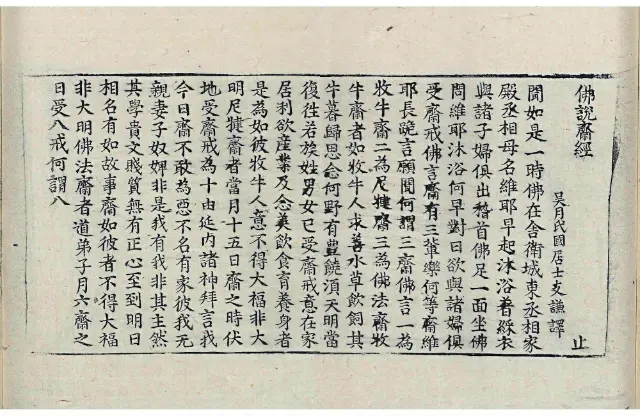 佛說齋經
吳月氏國居士支謙譯
止
聞如是一時佛在舍衛城東丞相家
殿丞相母名維耶早起沐浴著綵衣
與諸子婦俱出稽首佛足一面坐佛
問維耶沐浴何早對曰欲與諸婦俱
受齋戒佛言齋有三輩樂何等齋維
耶長跪言願聞何謂三齋佛言一為
牧牛齋二為尼犍齋三為佛法齋牧
牛齋者如牧牛人求善水草飲飼其
牛暮歸思念何野有豐饒須天明當
復往若族姓男女已受齋戒意在家
居利欲產業及念美飲食育養身者
是為如彼牧牛人意不得大福非大
明尼犍齋者當月十五日齋之時伏
地受齋戒為十由延內諸神拜言我
今日齋不敢為惡不名有家彼我无
親妻子奴婢非是我有我非其主然
其學貴文賤質無有正心至到明日
相名有如故事齋如彼者不得大福
非大明佛法齋者道弟子月六齋之
日受八戒何謂八